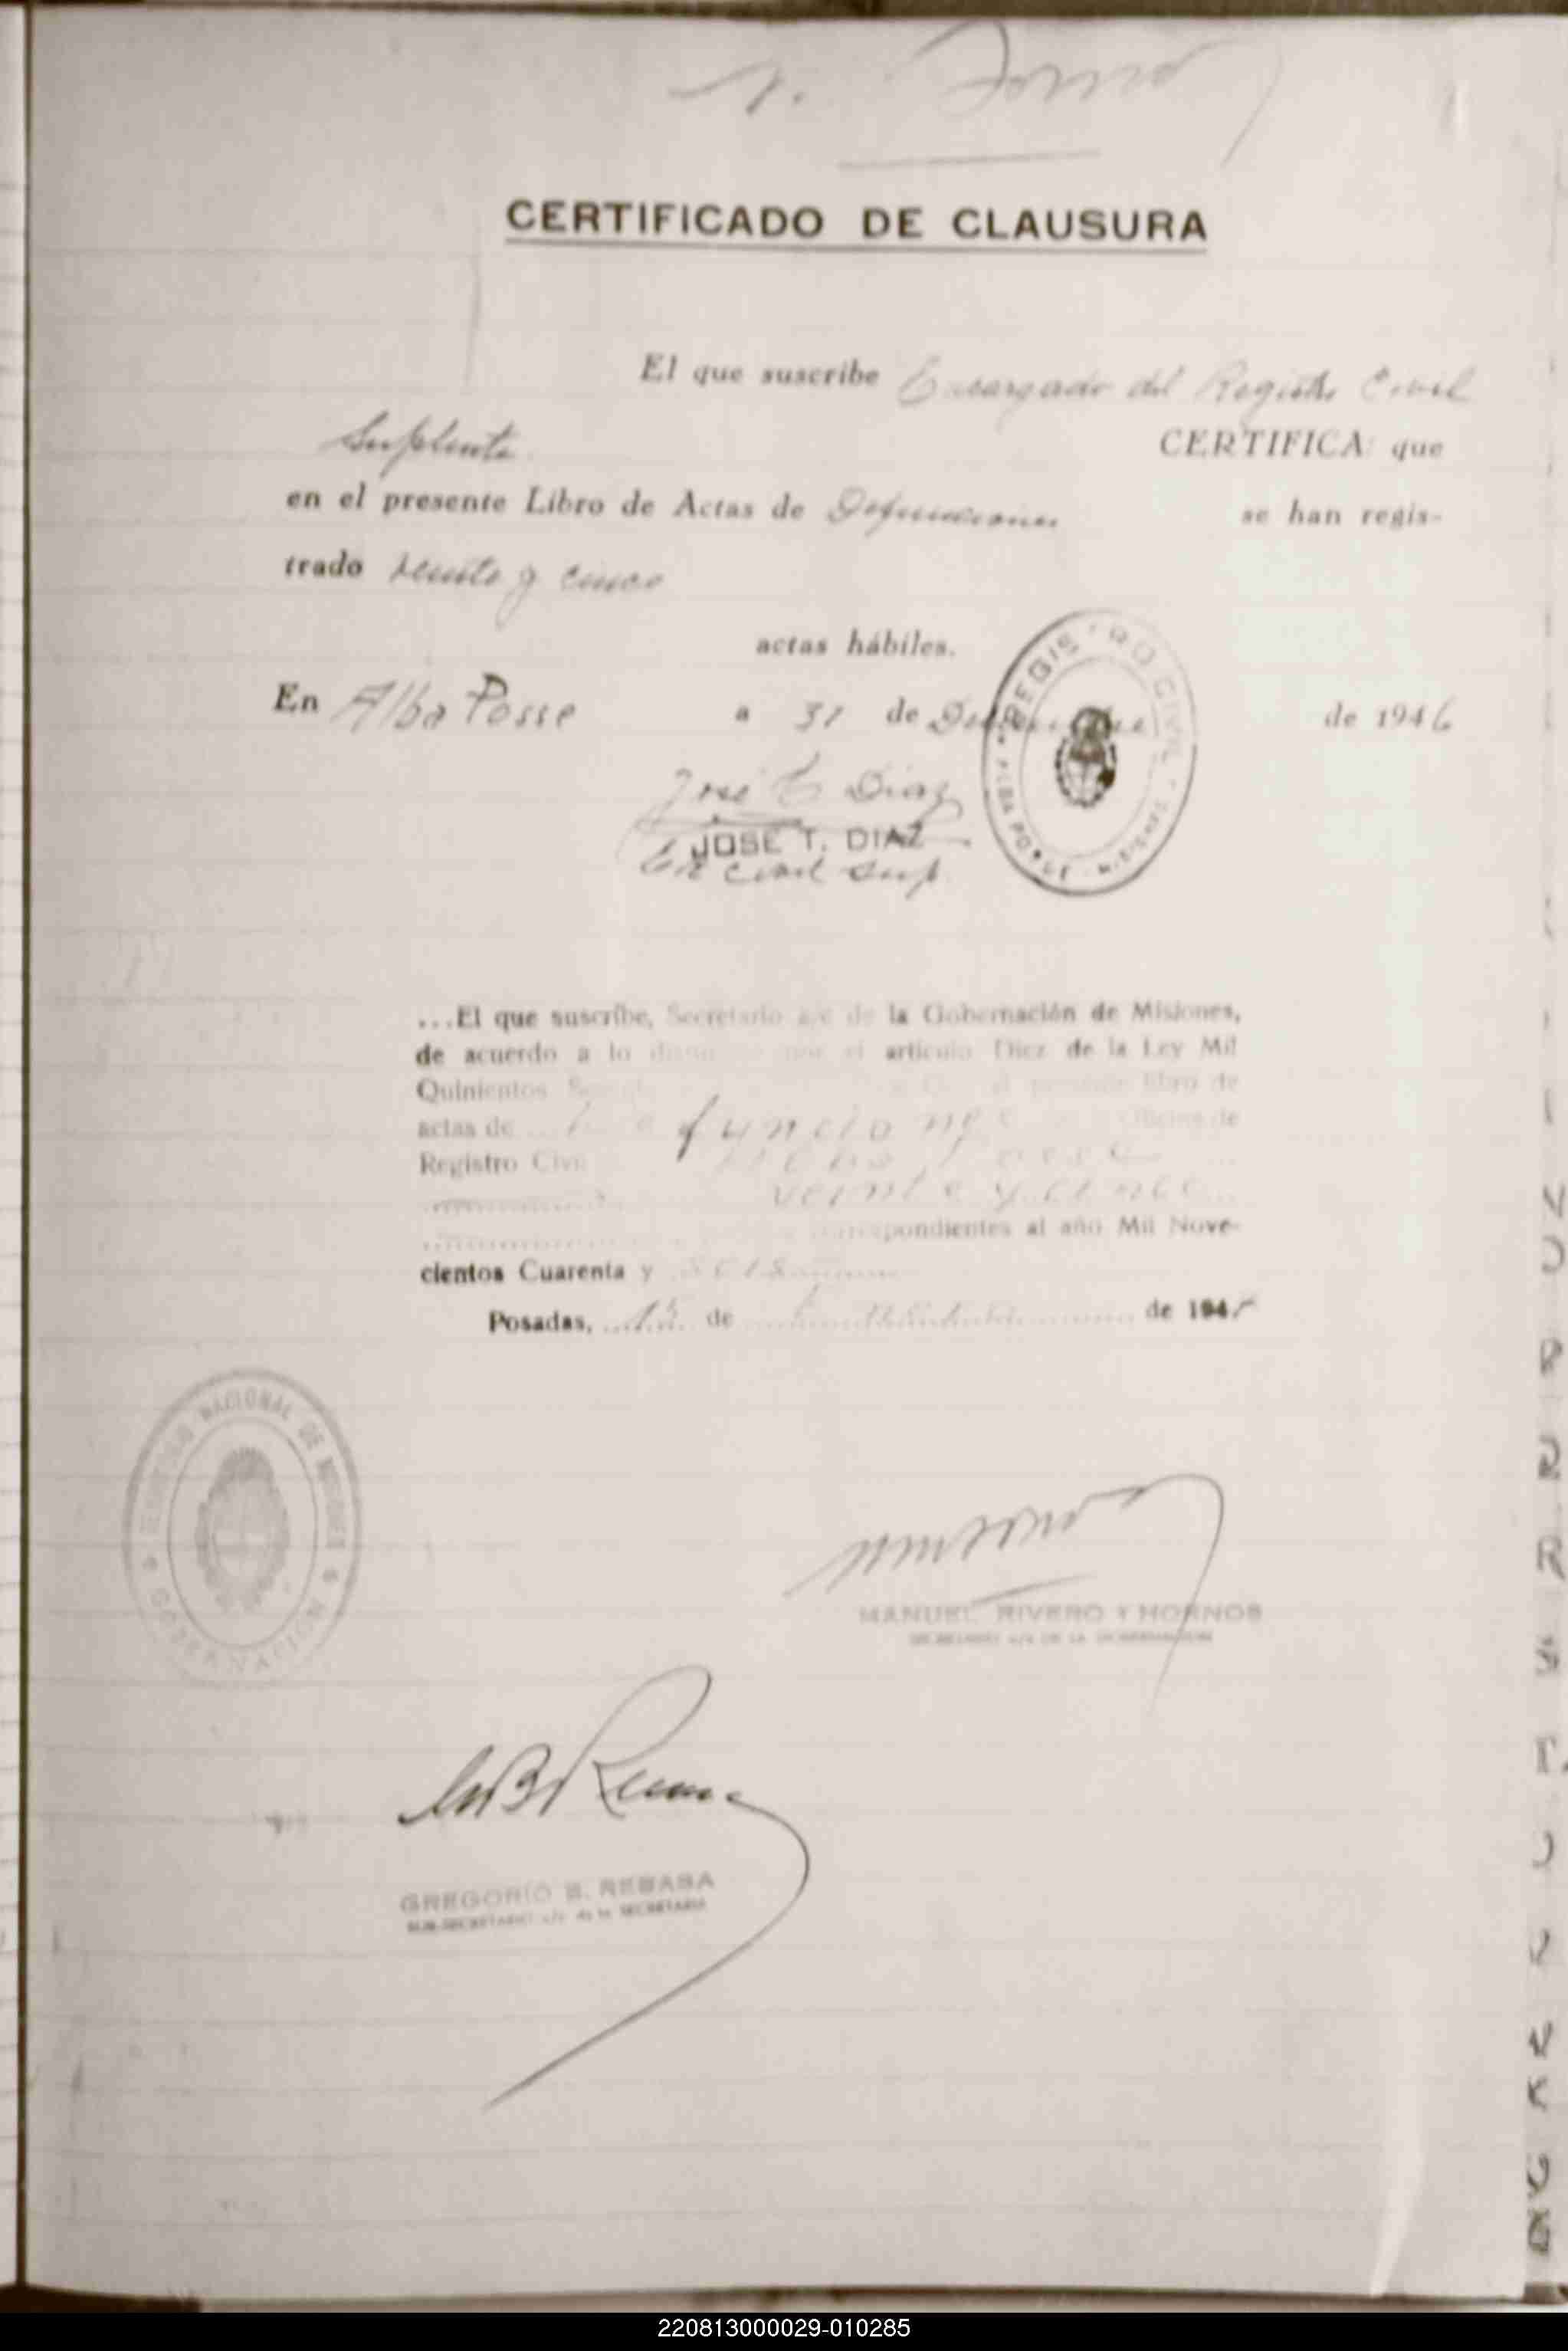 CERTIFICADO DE CLAUSURA
El que suscribe Encargado del Registro Civil
Suplente CERTIFICA: que
en el presente Libro de Actas de Defunciones se han regis-
trado veinte y cinco
actas hábiles.
En Alba Posse a 31 de Diciembre de 1946
REGISTRO CIVIL
ALBA POSSE - MISIONES
Jose T Diaz
JOSE T. DIAZ
Civil Sup
...El que suscribe, Secretario a/c de la Gobernación de Misiones,
de acuerdo a lo por el artículo Diez de la Ley Mil
Quinientos el presente libro de
actas de Defunciones Oficina de
Registro Civil Alba Posse
veinte y cinco
correspondientes al año Mil Nove-
cientos Cuarenta y seis
Posadas, de de 194
TERRITORIO NACIONAL DE MISIONES
GOBERNACION
MANUEL RIVERO Y HORNOS
SECRETARIO a/c DE LA GOBERNACION
GREGORIO B. REBASA
SUB-SECRETARIO a/c de la SECRETARIA
220813000029-010285